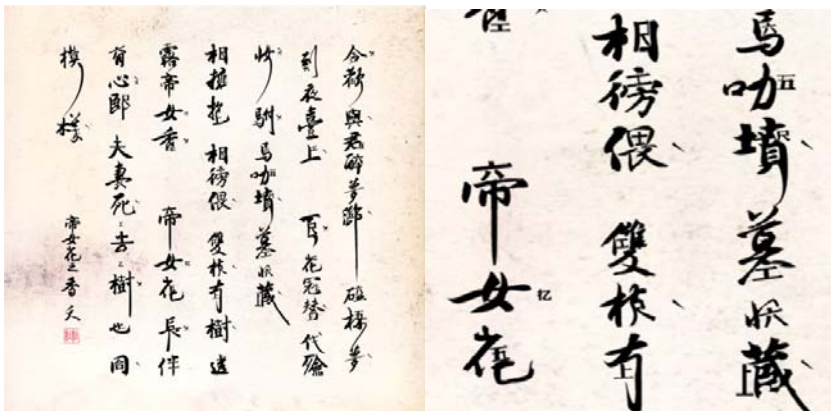 與君醉夢
到夜臺上 花冠替代殮
妝 駙馬叻墳墓收藏
相擁抱 相徬偎 雙枝有樹透
露帝女香 帝女花長伴
有心郎 夫妻死去樹也同
模樣
帝女花之香夭
馬叻墳墓收藏
相徬偎 雙枝有
帝女花